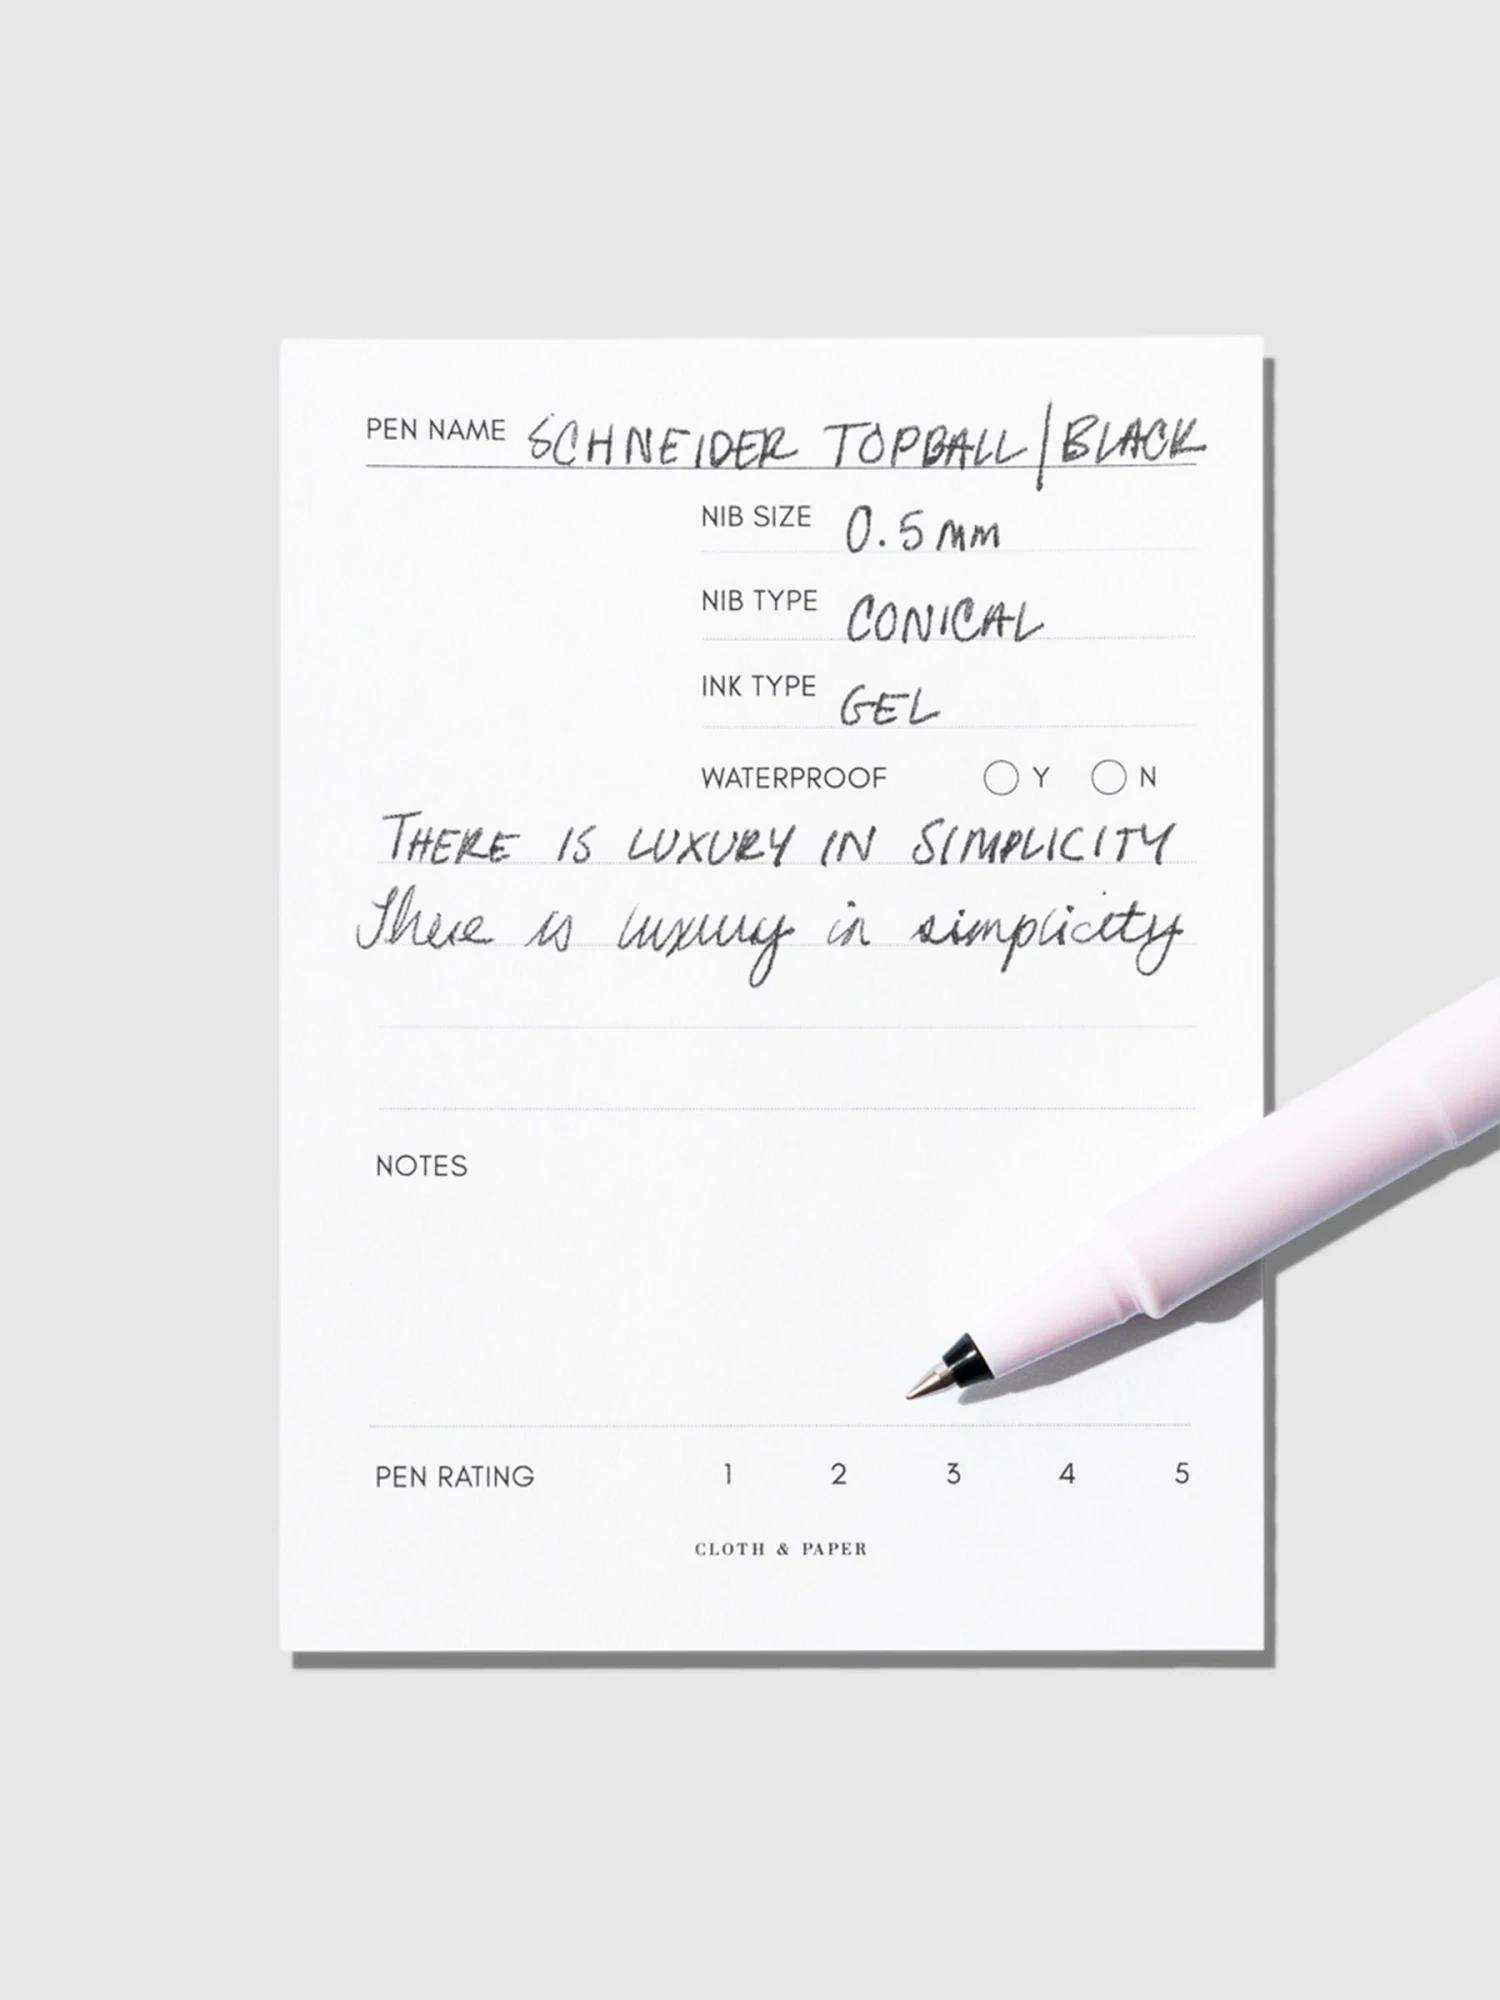 PEN NAME SCHNEIDER TOPBALL/BLACK
NIB SIZE 0.5mm
NIB TYPE CONICAL
INK TYPE GEL
WATERPROOF Y N
THERE IS LUXURY IN SIMPLICITY
There is luxury in simplicity
NOTES
PEN RATING 1 2 3 4 5
CLOTH & PAPER